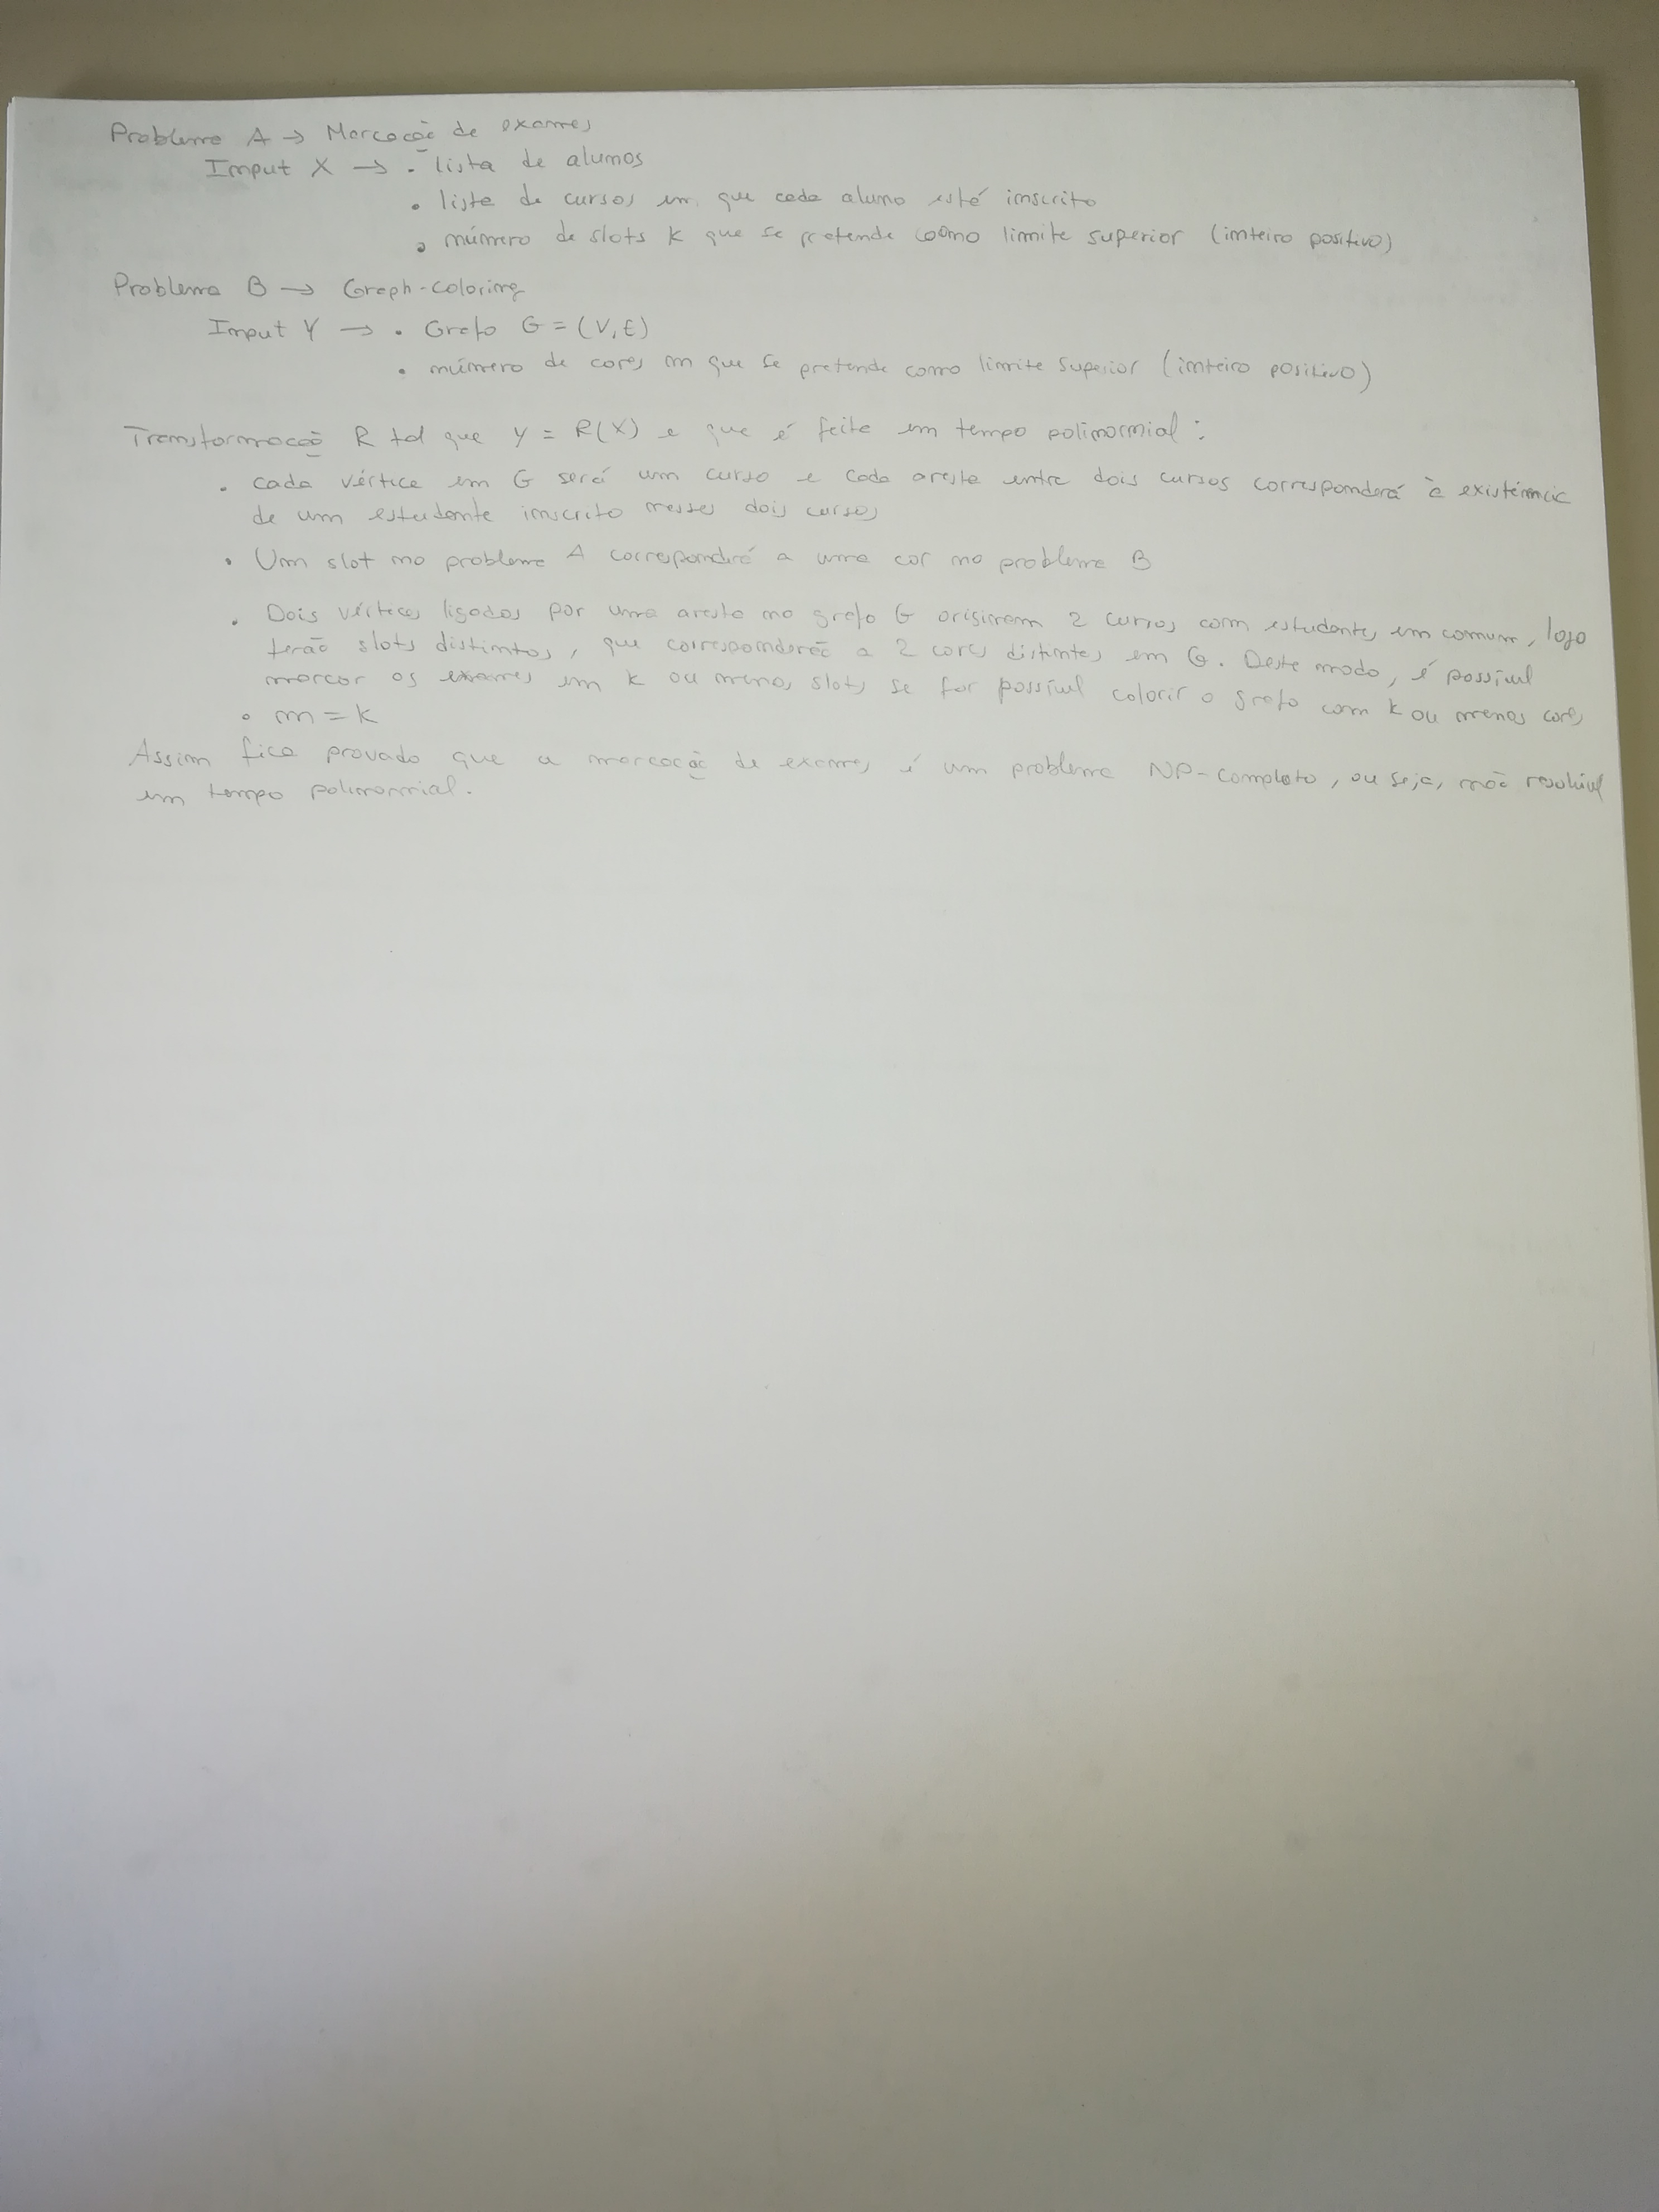 Problema A → Marcação de exames
Input X → • lista de alunos
• lista de cursos em que cada aluno está inscrito
• número de slots K que se pretende como limite superior (inteiro positivo)
Problema B → Graph-coloring
Input Y → • Grafo G = (V, E)
• número de cores m que se pretende como limite superior (inteiro positivo)
Transformação R tal que Y = R(X) e que é feita em tempo polinomial:
• cada vértice em G será um curso e cada aresta entre dois cursos corresponderá à existência
de um estudante inscrito nesses dois cursos
• Um slot no problema A corresponderá a uma cor no problema B
• Dois vértices ligados por uma aresta no grafo G originam 2 cursos com estudantes em comum, logo
terão slots distintos, que corresponderão a 2 cores distintas em G. Deste modo, é possível
marcar os exames em K ou menos slots se for possível colorir o grafo com K ou menos cores
• m = K
Assim fica provado que a marcação de exames é um problema NP-completo, ou seja, não resolúvel
em tempo polinomial.